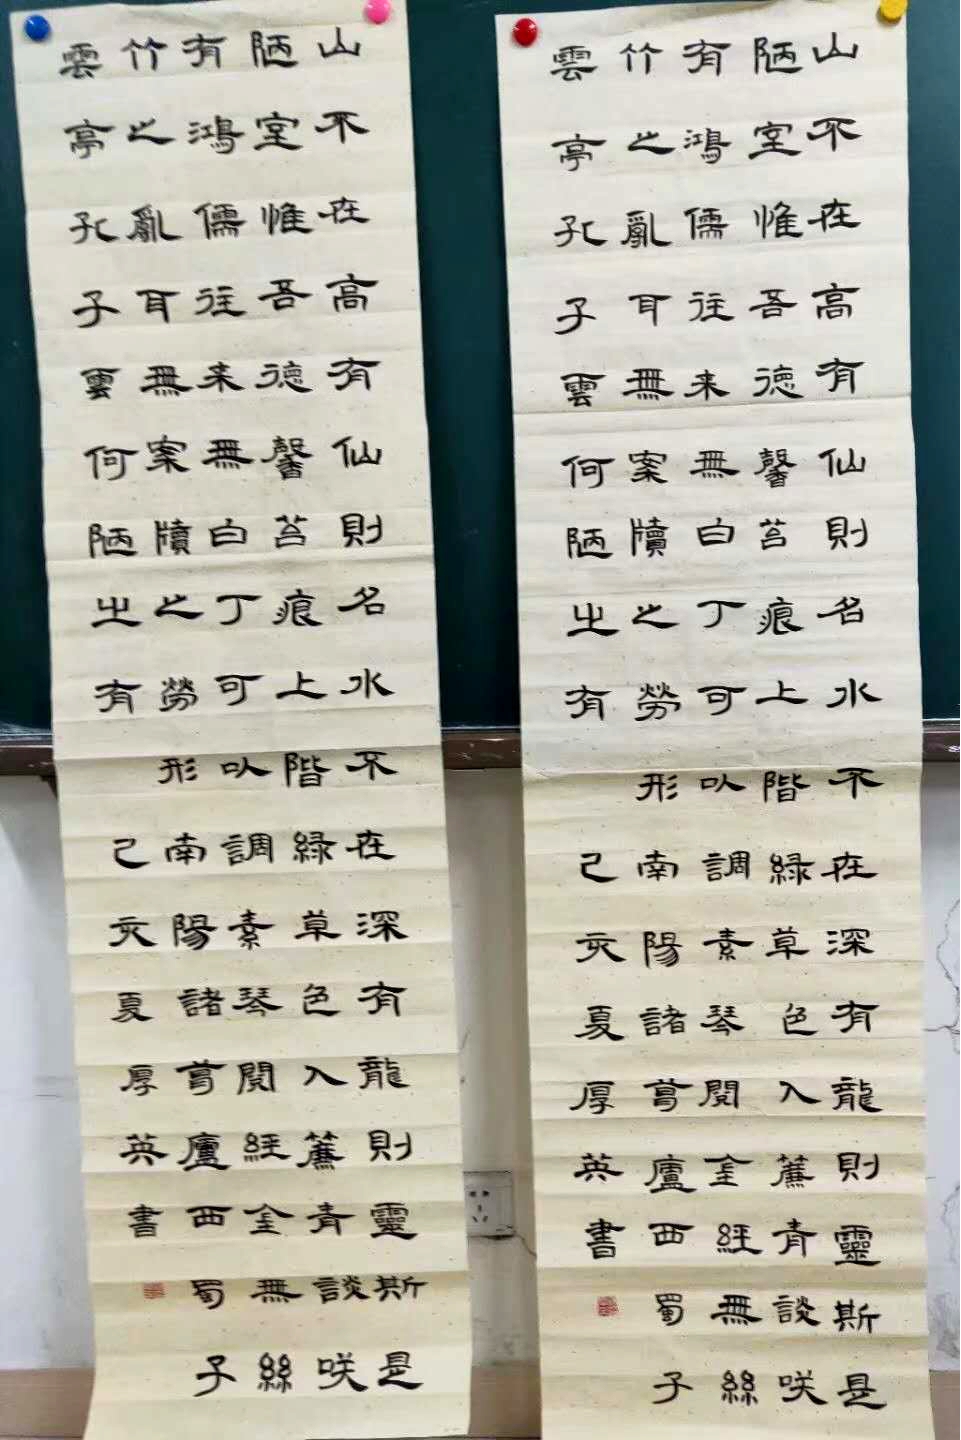 山不在高有仙則名水不在深有龍則靈斯是
陋室惟吾德馨苔痕上階綠草色入簾青談咲
有鴻儒往来無白丁可以調素琴閱金經無絲
竹之亂耳無案牘之勞形南陽諸葛廬西蜀子
雲亭孔子雲何陋之有 己亥夏厚英書
山不在高有仙則名水不在深有龍則靈斯是
陋室惟吾德馨苔痕上階綠草色入簾青談咲
有鴻儒往来無白丁可以調素琴閱經金無絲
竹之亂耳無案牘之勞形南陽諸葛廬西蜀子
雲亭孔子雲何陋之有 己亥夏厚英書